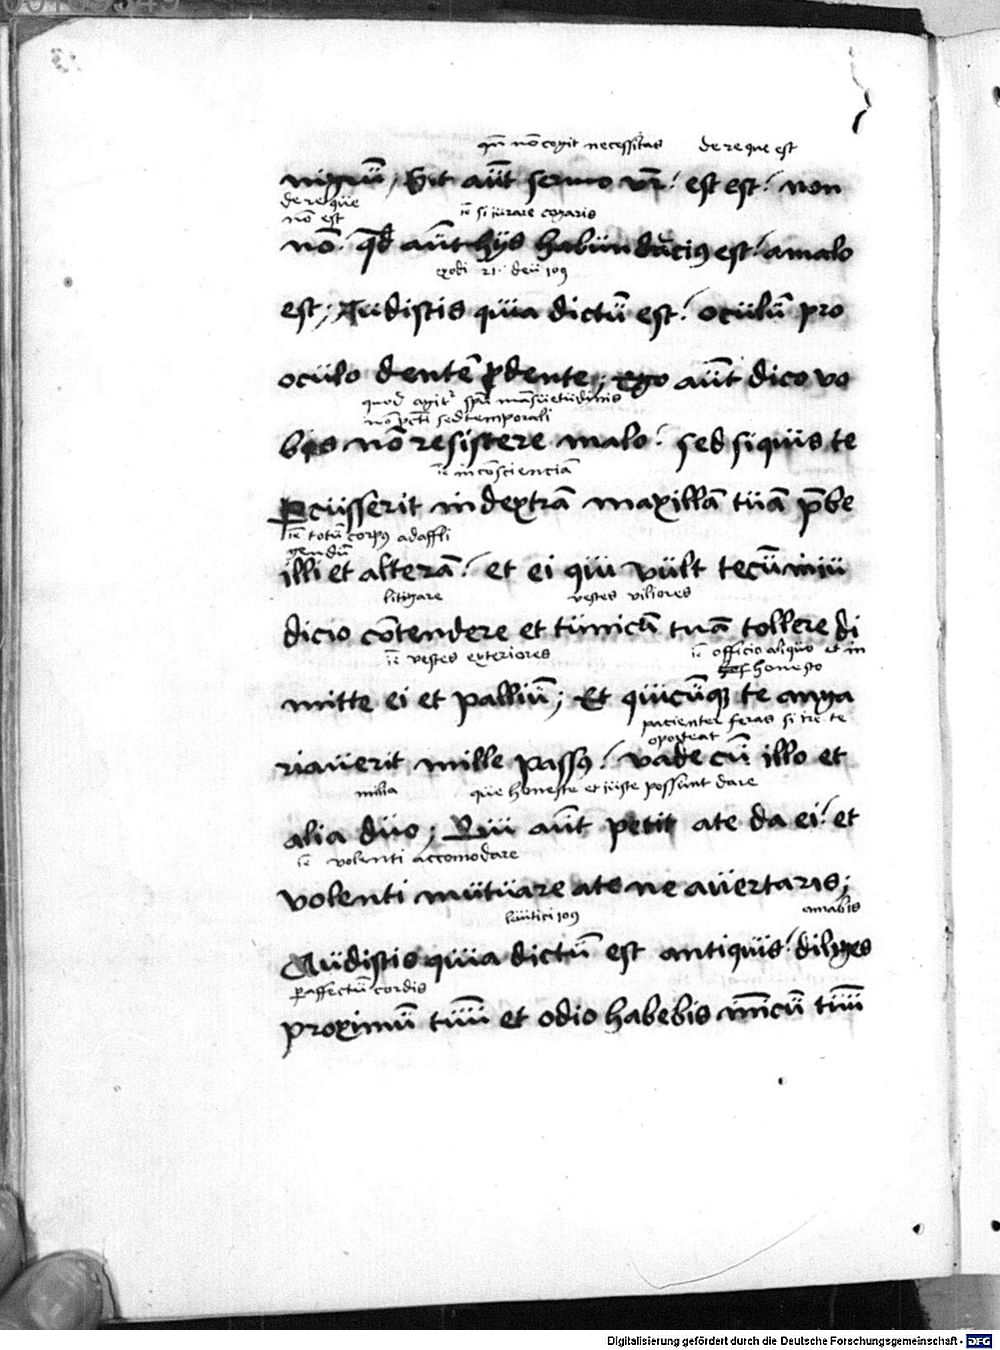 qn̄ nō cogit necessitas de re que est
nigrū, Sit aūt sermo vr̄ / est est / non
de re que
nō est
ie si iurare cogaris
nō. qd̄ aūt hijs habundāciꝰ est / a malo
exodi 21. deū 109
est; Audistis quia dictū est / oculū pro
oculo dentē ꝓ dente; ego aūt dico vo
quod agitr̄ spū māsuetudinis
nō pct̄i sed temporali
bis nō resistere malo / sed si quis te
ie in cōscienciā
ꝑcusserit in dextrā maxillā tuā p̄be
ie totū corpꝰ ad affli
gendū
illi et alterā / et ei qui vult tecū in iu
litigare vestes viliores
dicio cōtendere et tunicā tuā tollere di
ie vestes exteriores ie officio aliquo et in
honesto
mitte ei et palliū; Et quicūqꝫ te anga
pacienter feras si ire te
oporteat
riauerit mille passꝰ / vade cū illo et
milia que honeste et iuste possunt dare
alia duo; Qui aūt petit a te da ei / et
ie volenti accomodare
volenti mutuare a te ne auertaris;
leuitici 109 amabis
Audistis quia dictū est antiquis / diliges
ꝑ affectū cordis
proximū tuū et odio habebis inimicū tuū
Digitalisierung gefördert durch die Deutsche Forschungsgemeinschaft - DFG